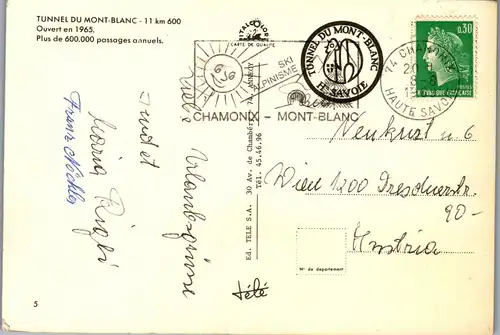 TUNNEL DU MONT-BLANC - 11 km 600
Ouvert en 1965.
Plus de 600.000 passages annuels.
CARTE DE QUALITÉ
SKI
ALPINISME
CHAMONIX - MONT-BLANC
TUNNEL DU MONT-BLANC
Hte SAVOIE
74 CHAMONIX
HAUTE SAVOIE
0,30
Liebe
Urlaubsgrüsse
sendet
Maria
Franz
Wien 1200 Dresdnerstr.
90-
Austria
Ed. TELE S.A. 30 Av. de Chambéry
Tél. 45.46.96
N° de département
télé
5